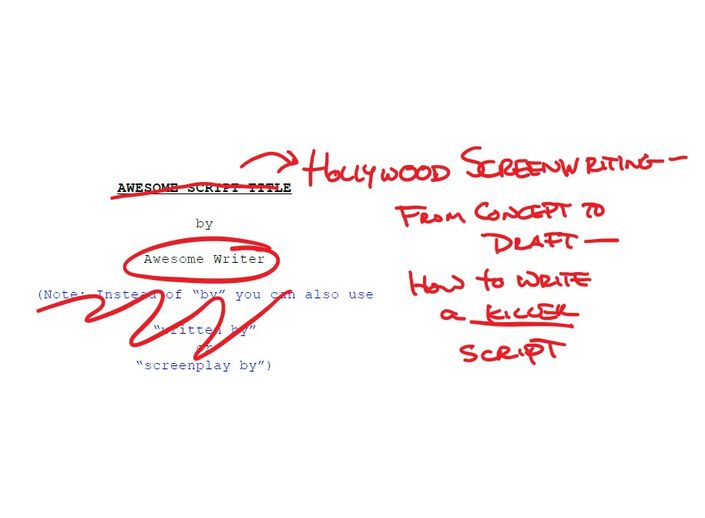 AWESOME SCRIPT TITLE
by
Awesome Writer
(Note: Instead of “by” you can also use
“written by”
or
“screenplay by”)
HOLLYWOOD SCREENWRITING—
FROM CONCEPT TO
DRAFT—
HOW TO WRITE
a KILLER
SCRIPT